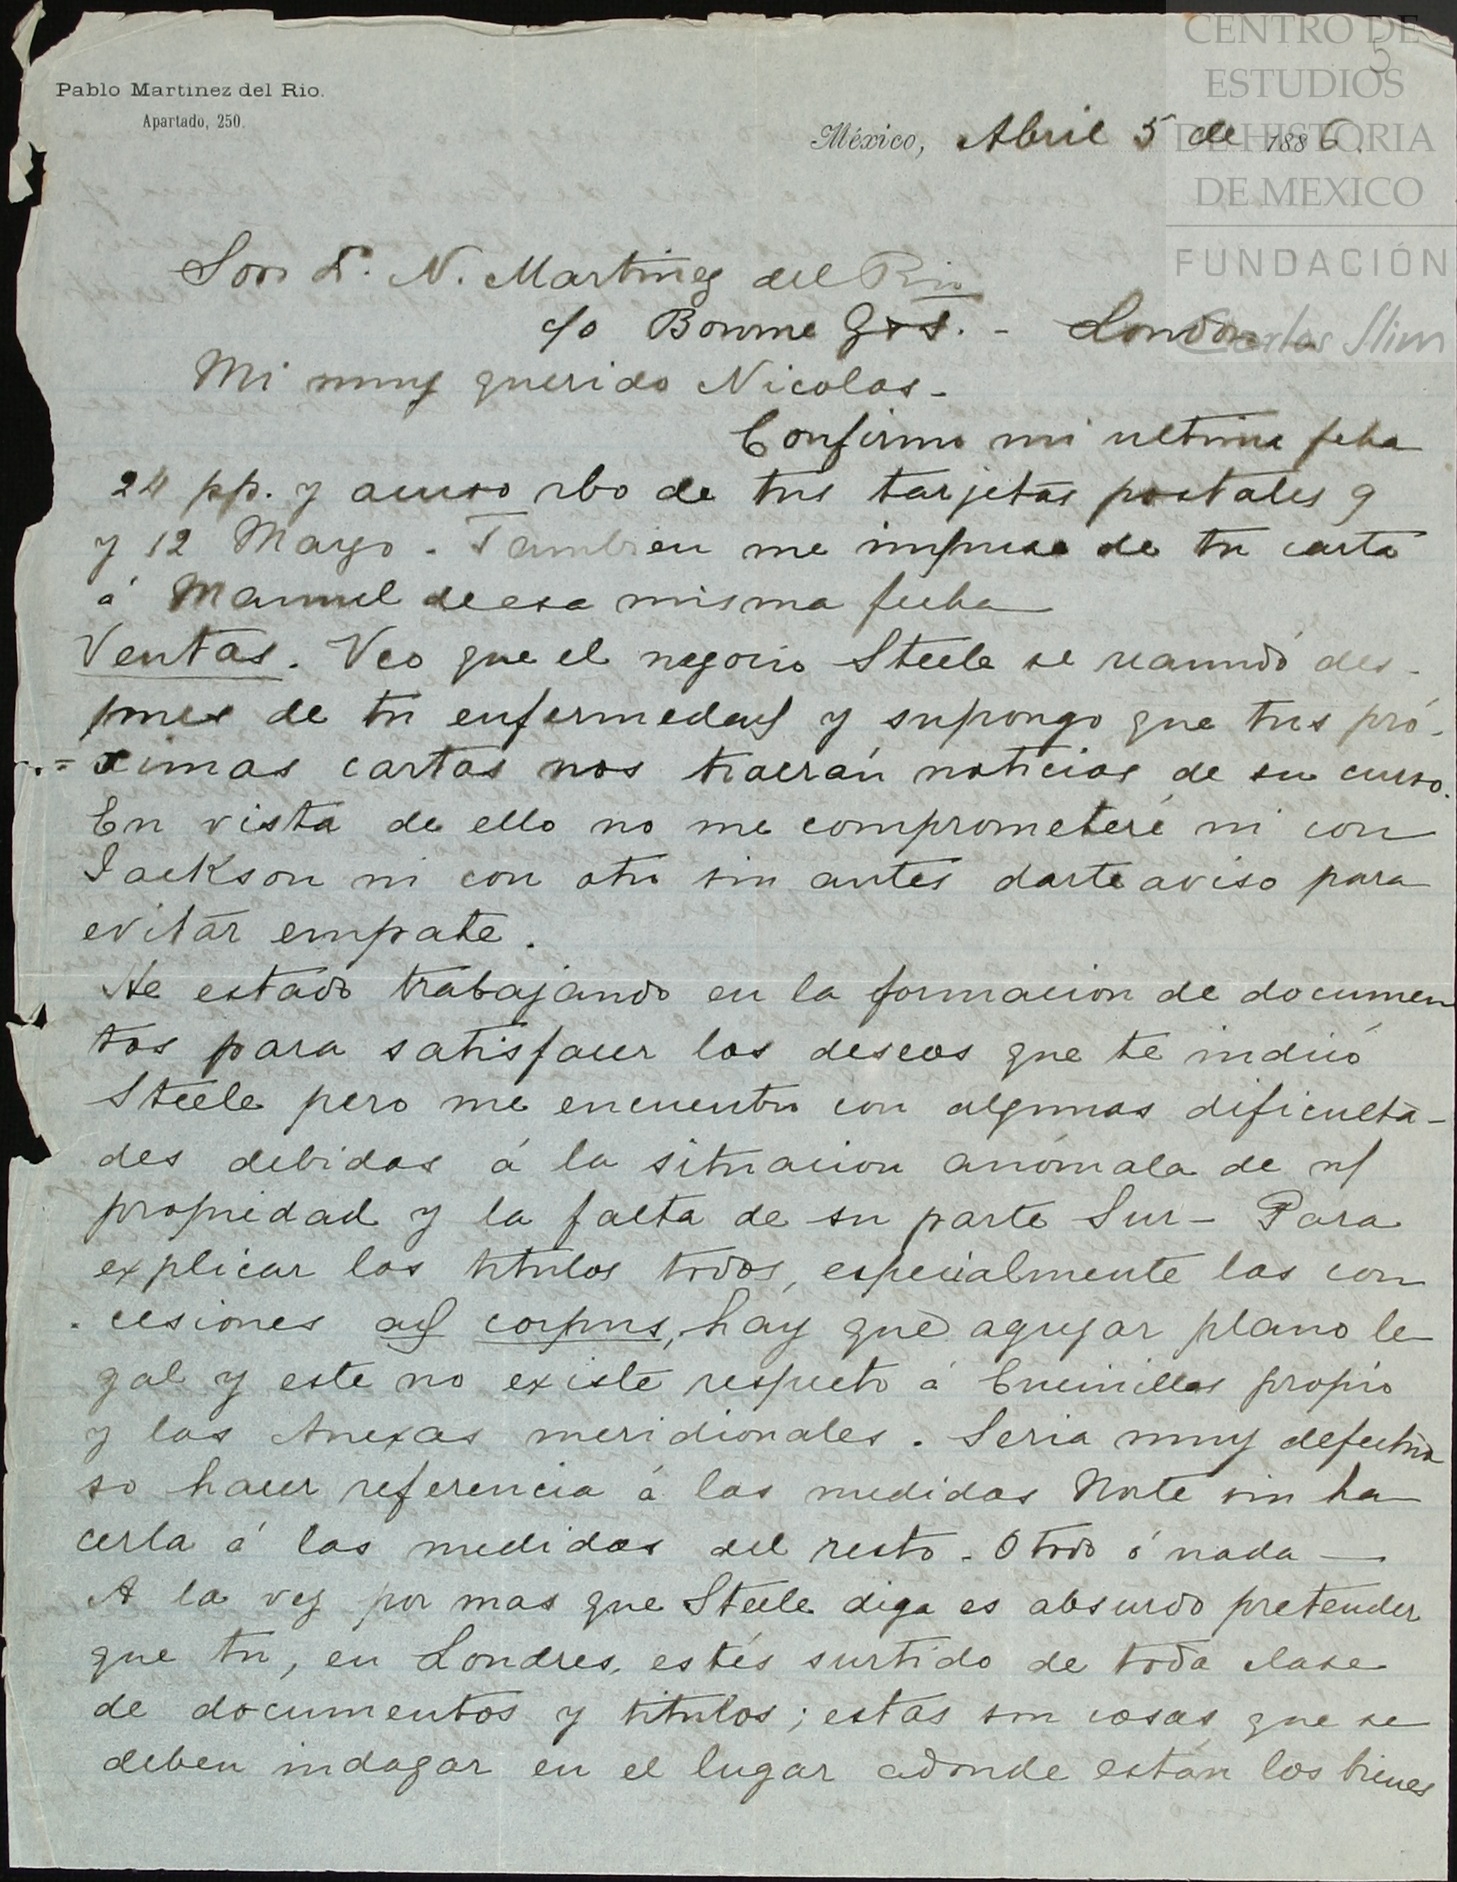 CENTRO DE
ESTUDIOS
DE HISTORIA
DE MEXICO
FUNDACIÓN
Carlos Slim
5
Pablo Martinez del Rio.
Apartado, 250.
México, Abril 5 de 1886.
Sor D. N. Martinez del Rio
c/o Bourne - London
Mi muy querido Nicolas -
Confirmo mi ultima fcha
24 pp. y acuso rbo de tus tarjetas postales 9
y 12 Marzo - Tambien me impuse de tu carta
á Manuel de esa misma fecha
Ventas. Veo que el negocio Steele se reanudó des-
pues de tu enfermedad y supongo que tus pró-
ximas cartas nos traerán noticias de su curso.
En vista de ello no me comprometeré ni con
Jackson ni con otro sin antes darte aviso para
evitar empate.
He estado trabajando en la formacion de documen
tos para satisfacer los deseos que te indicó
Steele pero me encuentro con algunas dificulta-
des debidas á la situacion anómala de nf
propiedad y la falta de su parte Sur - Para
explicar los titulos todos, especialmente las con
cesiones ad corpus, hay que agregar plano le
gal y este no existe respecto á Encinillas propio
y las Anexas meridionales. Seria muy defectuo
so hacer referencia á las medidas Norte sin ha
cerla á las medidas del resto - O todo ó nada —
A la vez por mas que Steele diga es absurdo pretender
que tu, en Londres, estés surtido de toda clase
de documentos y titulos; estas son cosas que se
deben indagar en el lugar adonde están los bienes